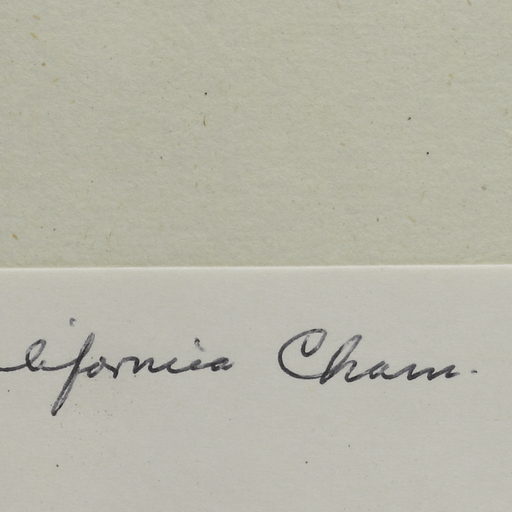 lifornica Cham.